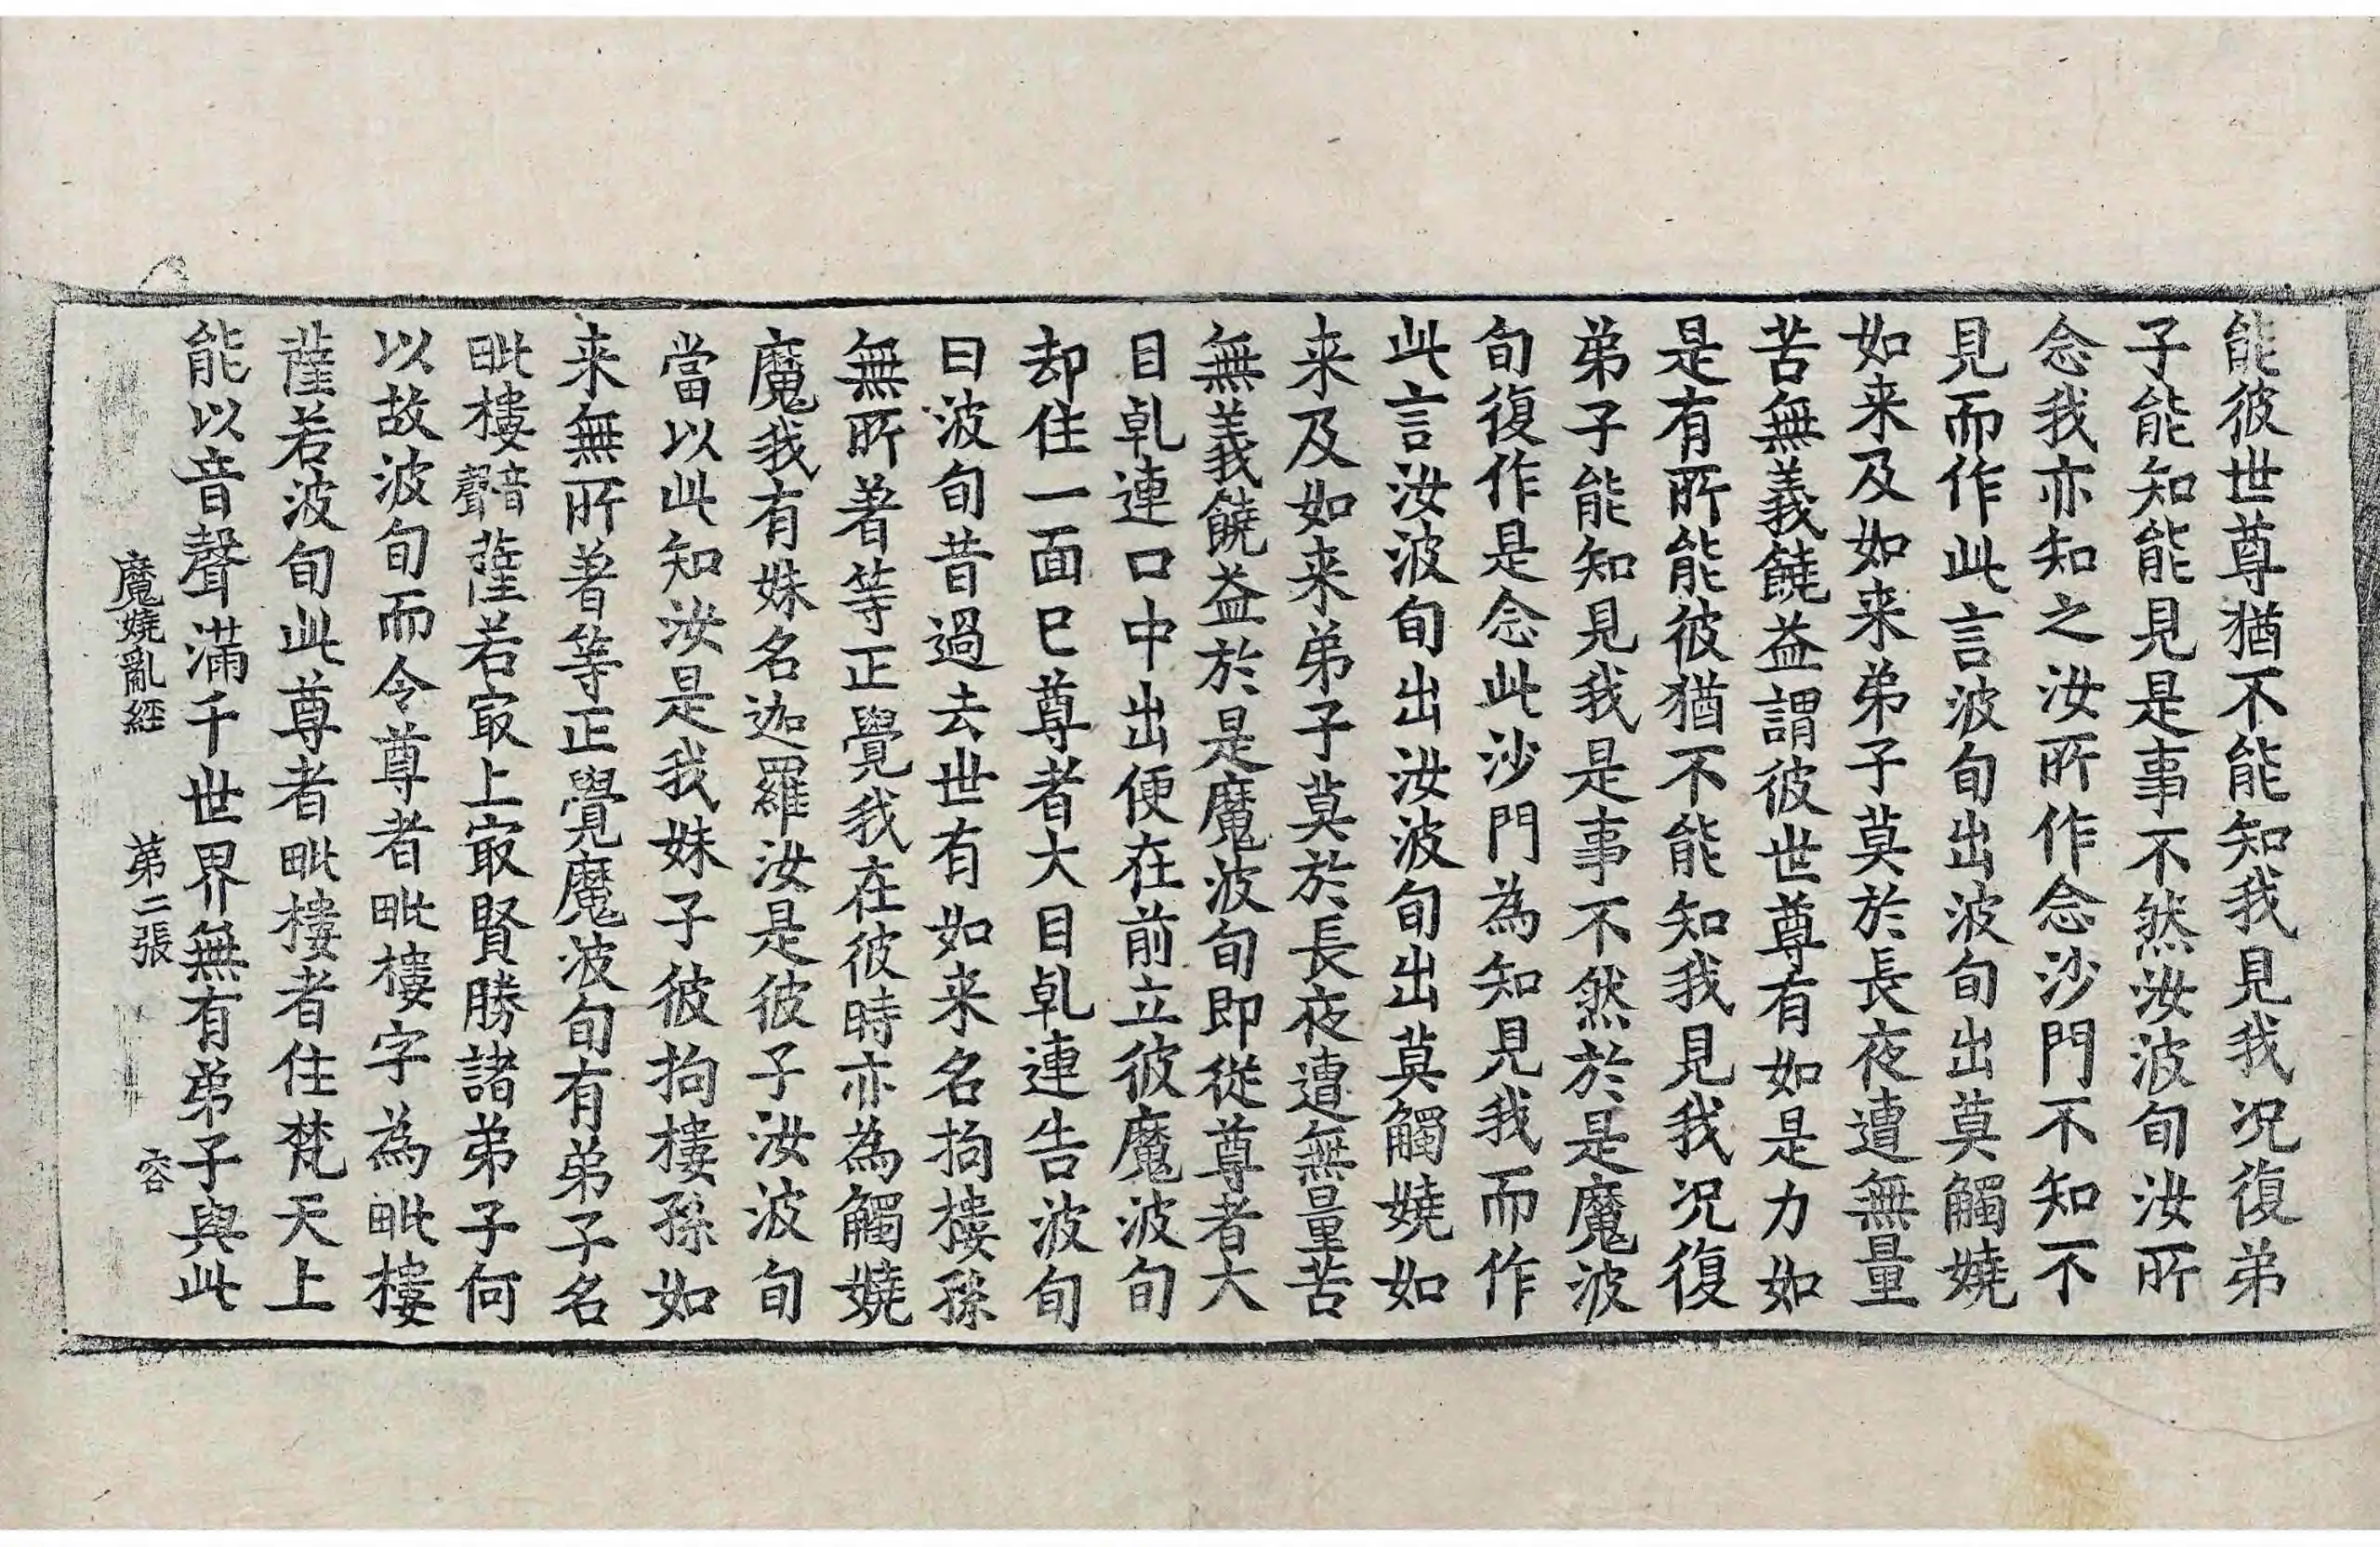 能彼世尊猶不能知我見我況復弟
子能知能見是事不然汝波旬汝所
念我亦知之汝所作念沙門不知不
見而作此言波旬出波旬出莫觸嬈
如来及如来弟子莫於長夜遭無量
苦無義饒益謂彼世尊有如是力如
是有所能彼猶不能知我見我况復
弟子能知見我是事不然於是魔波
旬復作是念此沙門為知見我而作
此言汝波旬出汝波旬出莫觸嬈如
来及如来弟子莫於長夜遭無量苦
無義饒益於是魔波旬即從尊者大
目乹連口中出便在前立彼魔波旬
却住一面已尊者大目乹連告波旬
曰波旬昔過去世有如来名拘樓孫
無所著等正覺我在彼時亦為觸嬈
魔我有妹名迦羅汝是彼子汝波旬
當以此知汝是我妹子彼拘樓孫如
来無所著等正覺魔波旬有弟子名
毗樓音聲薩若㝡上㝡賢勝諸弟子何
以故波旬而令尊者毗樓字為毗樓
薩若波旬此尊者毗樓者住梵天上
能以音聲滿千世界無有弟子與此
魔嬈亂經 第二張 容